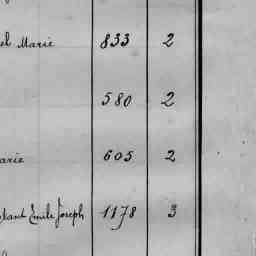 el Marie 833 2
580 2
arie 605 2
Emile Joseph 1178 3